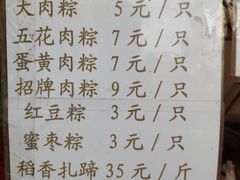 大肉粽 5元/只
五花肉粽 7元/只
蛋黄肉粽 7元/只
招牌肉粽 9元/只
红豆粽 3元/只
蜜枣粽 3元/只
稻香扎蹄 35元/斤